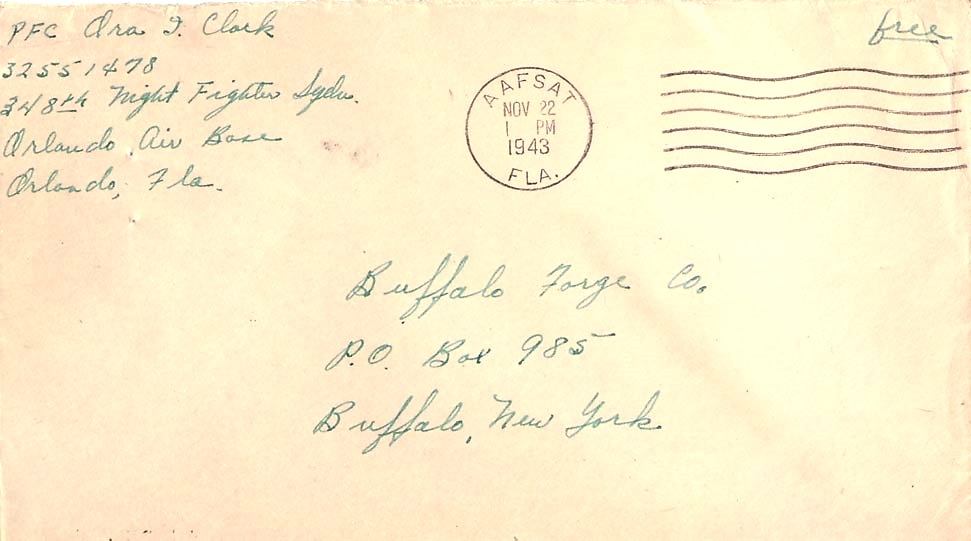 PFC Ora F. Clark
free
32551478
348th Night Fighter Sqdn.
Orlando Air Base
Orlando, Fla.
AAFSAT
NOV 22
1 PM
1943
FLA.
Buffalo Forge Co.
P.O. Box 985
Buffalo, New York